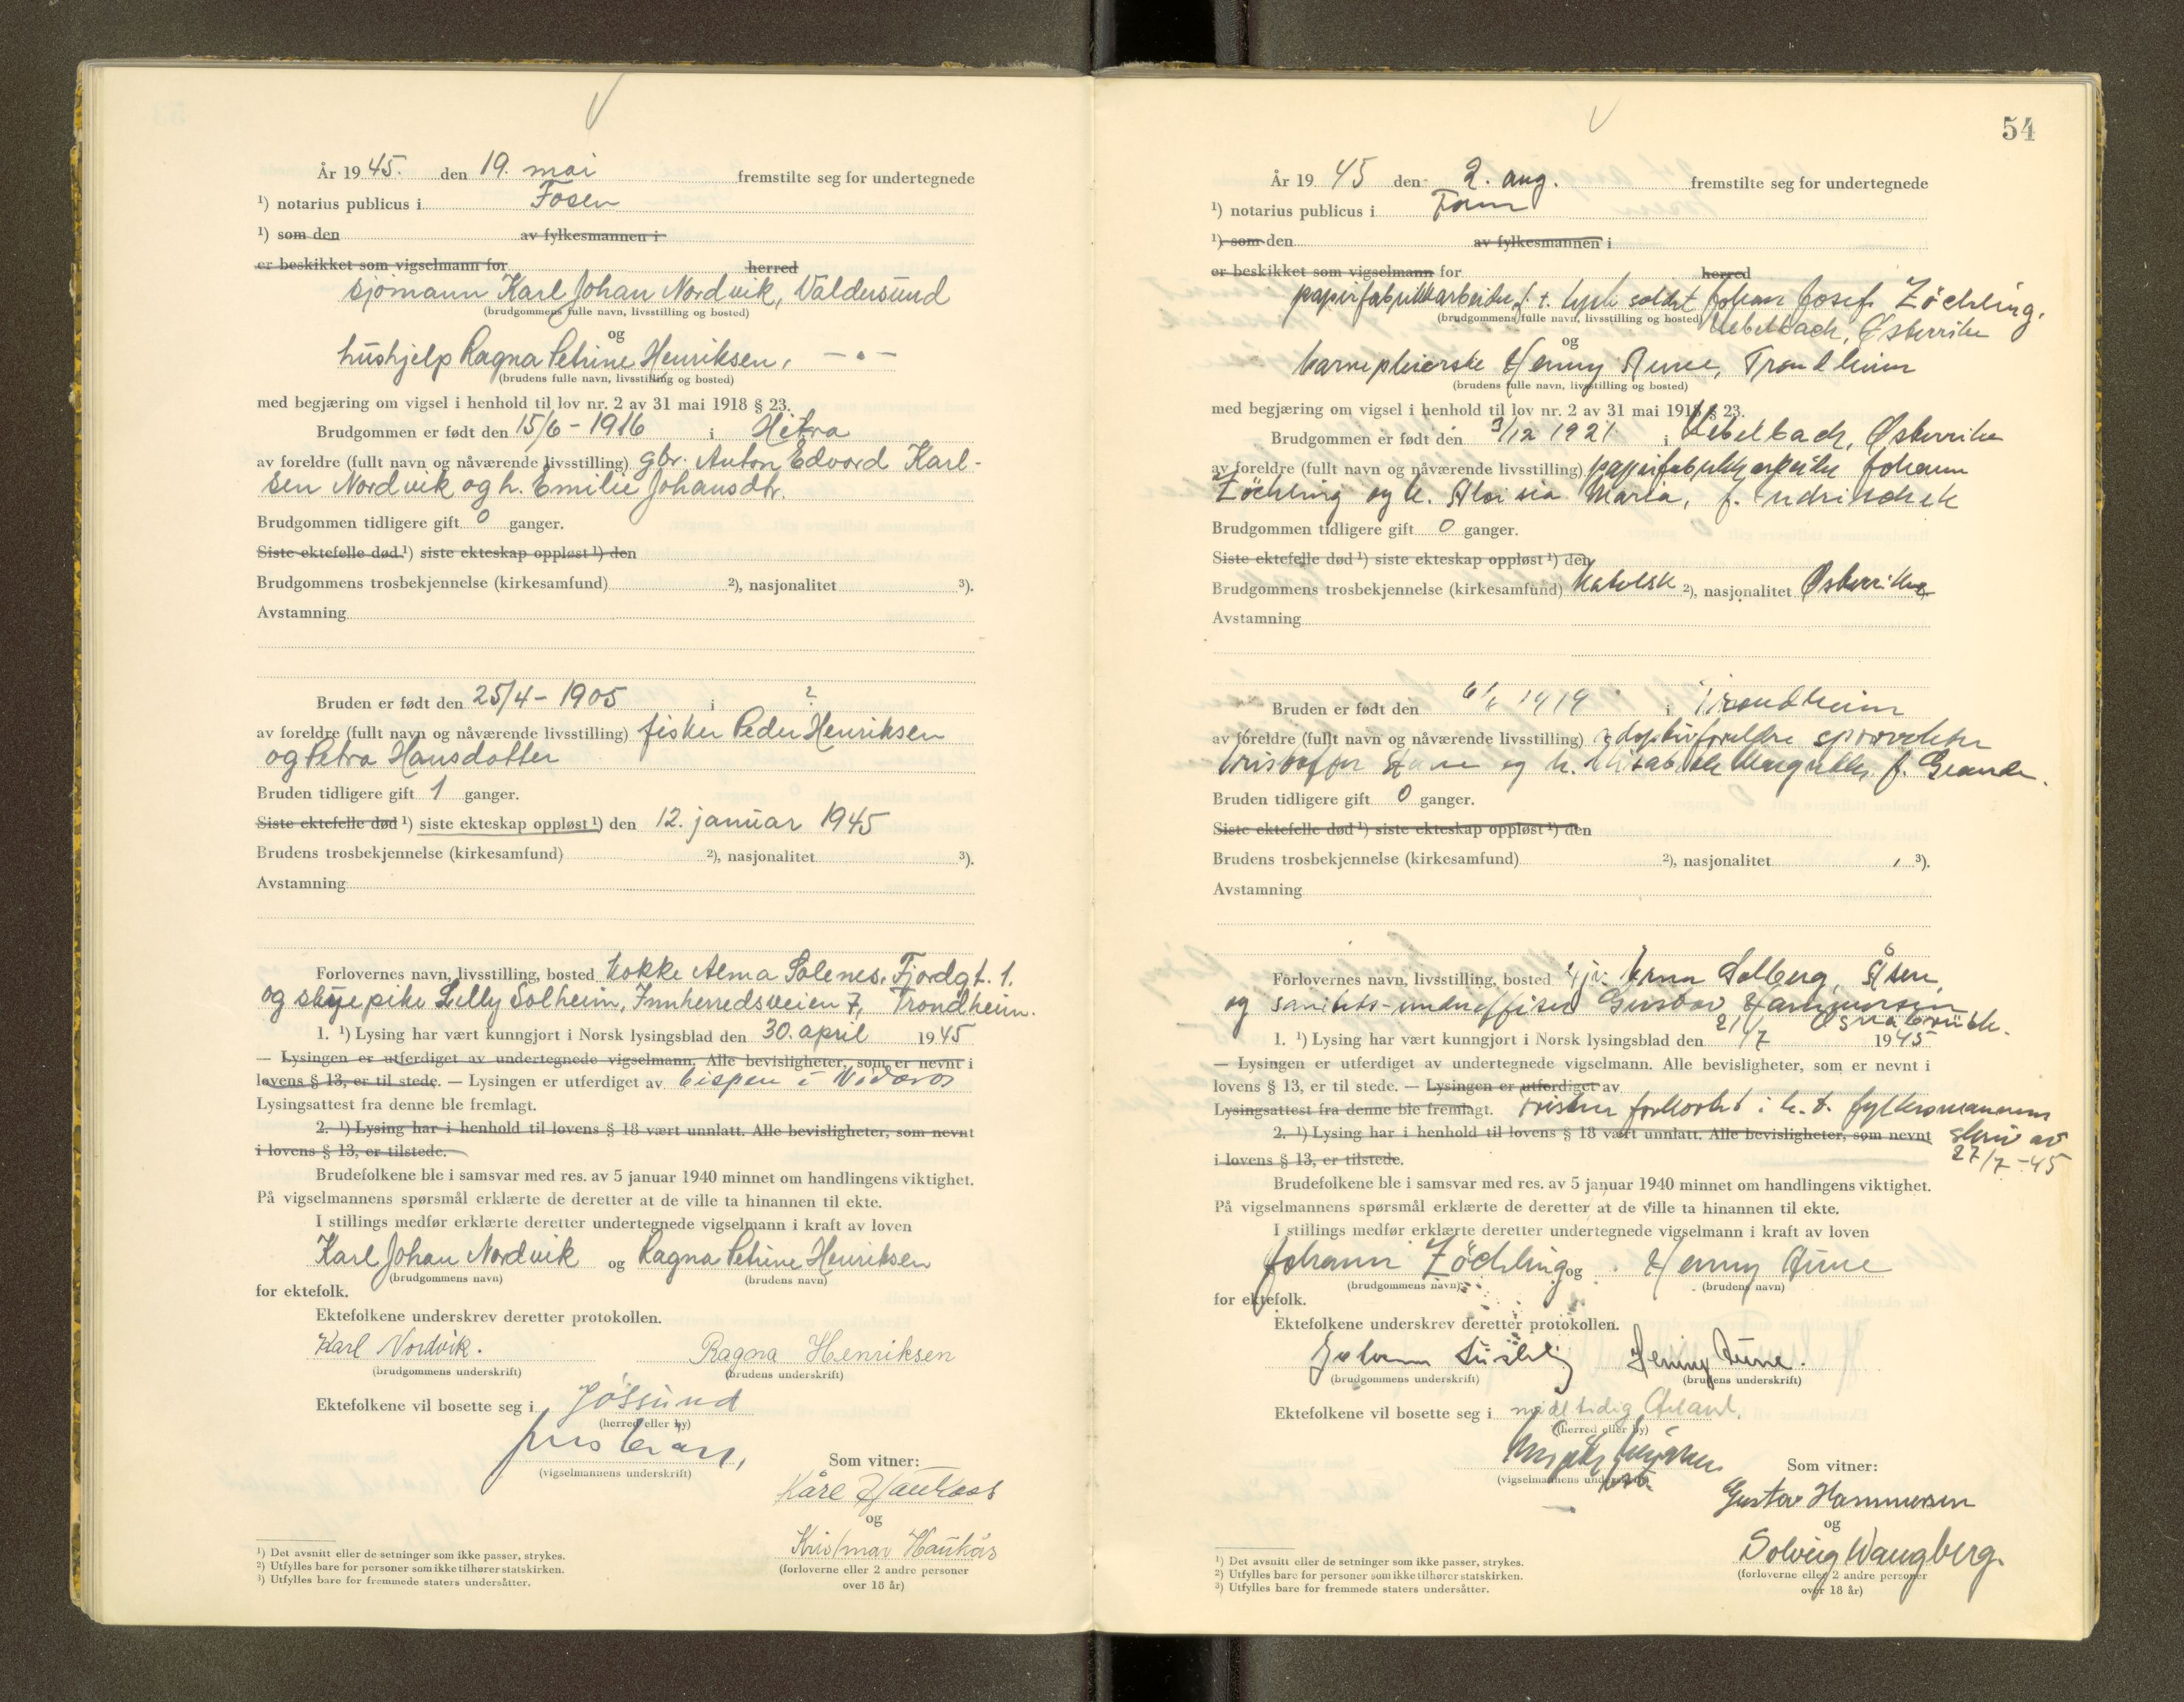 År 1945. den 19. mai fremstilte seg for undertegnede
¹) notarius publicus i Fosen
¹) som den av fylkesmannen i
er beskikket som vigselmann for herred
sjømann Karl Johan Nordvik, Valdersund
(brudgommens fulle navn, livsstilling og bosted)
og
hushjelp Ragna Petrine Henriksen, —„—
(brudens fulle navn, livsstilling og bosted)
med begjæring om vigsel i henhold til lov nr. 2 av 31 mai 1918 § 23.
Brudgommen er født den 15/6 - 1916 i Hitra
av foreldre (fullt navn og nåværende livsstilling) gbr. Anton Edvard Karl-
sen Nordvik og h. Emilie Johansdtr.
Brudgommen tidligere gift 0 ganger.
Siste ektefelle død ¹) siste ekteskap oppløst ¹) den
Brudgommens trosbekjennelse (kirkesamfund) ²), nasjonalitet ³).
Avstamning
Bruden er født den 25/4 - 1905 i ?
av foreldre (fullt navn og nåværende livsstilling) fisker Peder Henriksen
og Petra Hansdatter
Bruden tidligere gift 1 ganger.
Siste ektefelle død ¹) siste ekteskap oppløst ¹) den 12. januar 1945
Brudens trosbekjennelse (kirkesamfund) ²), nasjonalitet ³).
Avstamning
Forlovernes navn, livsstilling, bosted kokke Alma Solenes, Fjordgt. 1.
og syepike Lilly Solheim, Innherredsveien 7, Trondheim.
1. ¹) Lysing har vært kunngjort i Norsk lysingsblad den 30. april 1945
— Lysingen er utferdiget av undertegnede vigselmann. Alle bevisligheter, som er nevnt i
lovens § 13, er til stede. — Lysingen er utferdiget av bispen i Nidaros
Lysingsattest fra denne ble fremlagt.
2. ¹) Lysing har i henhold til lovens § 18 vært unnlatt. Alle bevisligheter, som nevnt
i lovens § 13, er tilstede.
Brudefolkene ble i samsvar med res. av 5 januar 1940 minnet om handlingens viktighet.
På vigselmannens spørsmål erklærte de deretter at de ville ta hinannen til ekte.
I stillings medfør erklærte deretter undertegnede vigselmann i kraft av loven
Karl Johan Nordvik og Ragna Petrine Henriksen
(brudgommens navn) (brudens navn)
for ektefolk.
Ektefolkene underskrev deretter protokollen.
Karl Nordvik. Ragna Henriksen
(brudgommens underskrift) (brudens underskrift)
Ektefolkene vil bosette seg i Jøssund
(herred eller by)
(vigselmannens underskrift)
Som vitner:
Kåre Haukaas
og
Kristmar Haukås
(forloverne eller 2 andre personer
over 18 år)
¹) Det avsnitt eller de setninger som ikke passer, strykes.
²) Utfylles bare for personer som ikke tilhører statskirken.
³) Utfylles bare for fremmede staters undersåtter.
54
År 1945 den 2. aug. fremstilte seg for undertegnede
¹) notarius publicus i Fosen
¹) som den av fylkesmannen i
er beskikket som vigselmann for herred
papirfabrikkarbeider f. t. tysk soldat Johan Josef Zöchling,
(brudgommens fulle navn, livsstilling og bosted) Uebelbach, Østerrike
og
barnepleierske Henny Aune, Trondheim
(brudens fulle navn, livsstilling og bosted)
med begjæring om vigsel i henhold til lov nr. 2 av 31 mai 1918 § 23.
Brudgommen er født den 3/12 1921 i Uebelbach, Østerrike
av foreldre (fullt navn og nåværende livsstilling) papirfabrikkarbeider Johann
Zöchling og h. Aloisia Maria, f.
Brudgommen tidligere gift 0 ganger.
Siste ektefelle død ¹) siste ekteskap oppløst ¹) den
Brudgommens trosbekjennelse (kirkesamfund) katolsk ²), nasjonalitet Østerriker ³).
Avstamning
Bruden er født den 1919 i Trondheim
av foreldre (fullt navn og nåværende livsstilling) adoptivforeldre
Kristoffer Aune og h. Elisabeth Margrethe f. Grande.
Bruden tidligere gift 0 ganger.
Siste ektefelle død ¹) siste ekteskap oppløst ¹) den
Brudens trosbekjennelse (kirkesamfund) ²), nasjonalitet ³).
Avstamning
Forlovernes navn, livsstilling, bosted Erna Solberg, Åsen,
og sanitets-underoffiser Gustav Hammersen
Osnabrück.
1. ¹) Lysing har vært kunngjort i Norsk lysingsblad den 21/7 1945
— Lysingen er utferdiget av undertegnede vigselmann. Alle bevisligheter, som er nevnt i
lovens § 13, er til stede. — Lysingen er utferdiget av
Lysingsattest fra denne ble fremlagt. Fristen forkortet i h. t. fylkesmannens
skriv av
27/7 - 45
2. ¹) Lysing har i henhold til lovens § 18 vært unnlatt. Alle bevisligheter, som nevnt
i lovens § 13, er tilstede.
Brudefolkene ble i samsvar med res. av 5 januar 1940 minnet om handlingens viktighet.
På vigselmannens spørsmål erklærte de deretter at de ville ta hinannen til ekte.
I stillings medfør erklærte deretter undertegnede vigselmann i kraft av loven
Johann Zöchling og Henny Aune
(brudgommens navn) (brudens navn)
for ektefolk.
Ektefolkene underskrev deretter protokollen.
Johann Henny Aune.
(brudgommens underskrift) (brudens underskrift)
Ektefolkene vil bosette seg i
(herred eller by)
(vigselmannens underskrift)
Som vitner:
Gustav Hammersen
og
Solveig Waugberg.
(forloverne eller 2 andre personer
over 18 år)
¹) Det avsnitt eller de setninger som ikke passer, strykes.
²) Utfylles bare for personer som ikke tilhører statskirken.
³) Utfylles bare for fremmede staters undersåtter.